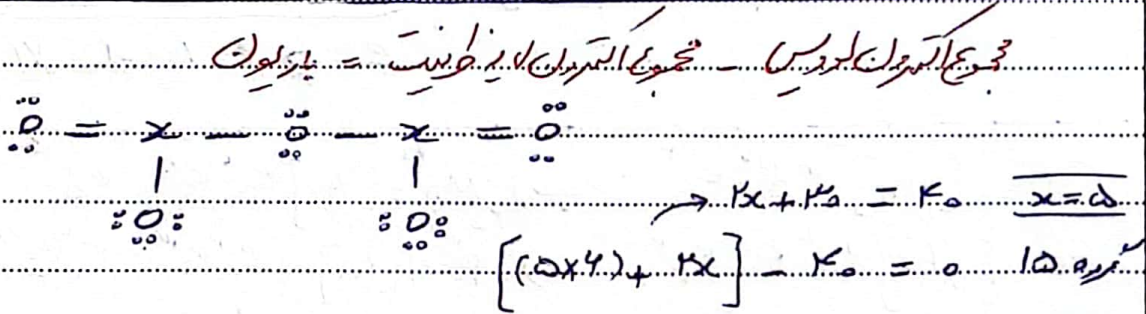 مجموع الکترون لوویس - مجموع الکترون لایه ظرفیت = بار یون
O = x - O - x = O
| |
O O
→ ۲x + ۳۰ = ۴۰ x = ۵
[(۵×۶) + ۲x] - ۴۰ = ۰ گروه ۱۵